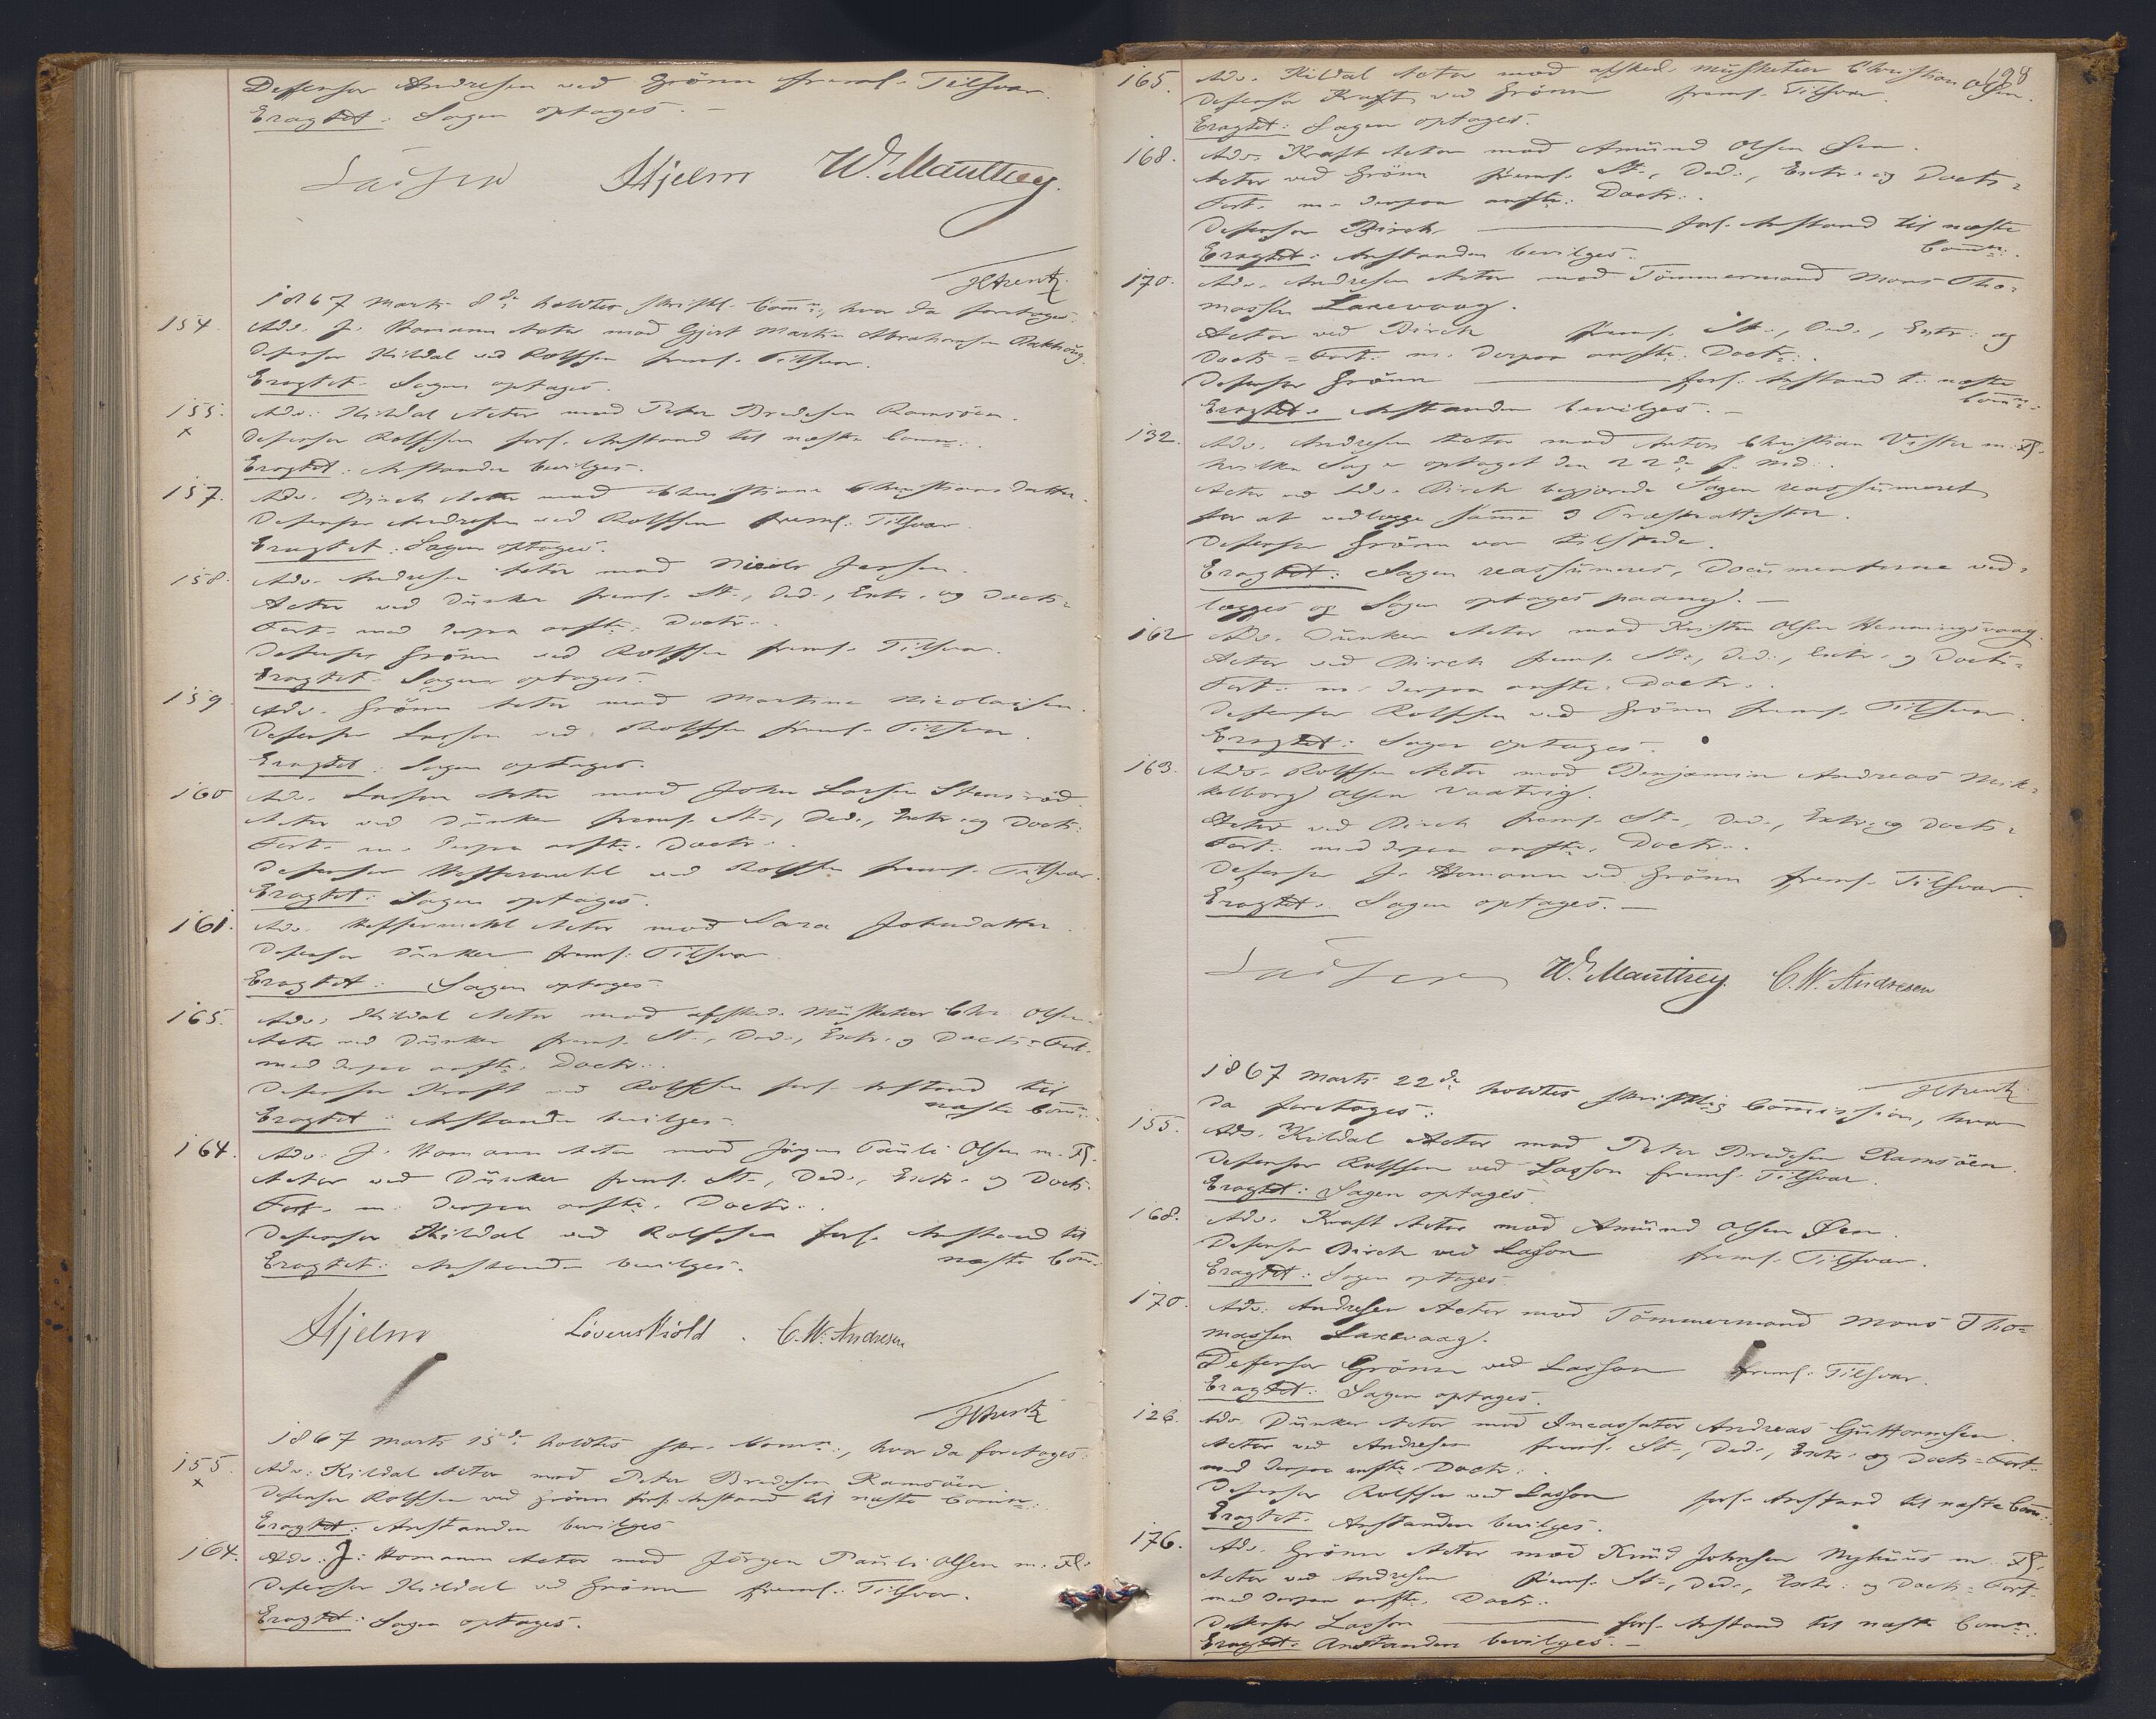 Defensor Andresen ved Grönn freml. Tilsvar.
Eragtet: Sagen optages.
Hjelm W. Mauthey.
1867 Marts 8de holdtes skriftl. Comn:, hvor da foretoges:
154. Adv. J. Homann Actor mod Gjert Martin Abrahamsen
Defensor Kildal ved Rolfsen freml. Tilsvar.
Eragtet. Sagen optages.
155. Adv: Kildal Actor mod Peter Bredesen Ramsöen.
x Defensor Rolfsen forl. Anstand til næste Comn:.
Eragtet: Anstanden bevilges.
157. Adv. Birch Actor mod Christiane Christiansdatter.
Defensor Andresen ved Rolfsen freml: Tilsvar.
Eragtet: Sagen optages.
158. Adv. Andresen Actor mod Jensen.
Actor ved Dünker freml. St., Ded., Extr. og Docts=
Fort. med derpaa anfte: Doctr.
Defensor Grönn ved Rolfsen freml. Tilsvar.
Eragtet. Sagen optages.
159. Adv. Grönn Actor mod Martine Nicolaisen.
Defensor Lasson ved Rolfsen freml. Tilsvar.
Eragtet: Sagen optages.
160 Adv. Lasson Actor mod John Larsen Stensröd.
Actor ved Dünker freml. St., Ded., Extr. og Docts:
Fort. m. derpaa anfte. Doctr.
Defensor Heffermehl ved Rolfsen freml. Tilsvar.
Eragtet: Sagen optages.
161. Adv. Heffermehl Actor mod Sara Johnsdatter.
Defensor Dünker freml: Tilsvar.
Eragtet: Sagen optages.
165. Adv. Kildal Actor mod afsked. Müsketeer Chr. Olsen.
Actor ved Dünker freml. St., Ded., Extr. og Docts=Fort.
med derpaa anfte. Doctr.
Defensor Kraft ved Rolfsen forl. Anstand til
næste Comn:.
Eragtet: Anstanden bevilges.
164. Adv: J. Homann Actor mod Jörgen Paüli Olsen m. Fl.
Actor ved Dünker freml. St., Ded., Extr. og Docts.
Fort. m. derpaa anfte. Doctr.
Defensor Kildal ved Rolfsen forl. Anstand til
næste Comn.
Eragtet: Anstanden bevilges.
Hjelm Lövenskiold. C. W. Andresen
1867 Marts 15de holdtes skr. Comn:, hvor da foretoges:
155. Adv: Kildal Actor mod Peter Bredesen Ramsöen
x Defensor Rolfsen ved Grönn forl. Anstand til næste Comn:.
Eragtet: Anstanden bevilges
164. Adv. J: Homann Actor mod Jörgen Paüli Olsen m. Fl.
Defensor Kildal ved Grönn freml. Tilsvar.
Eragtet: Sagen optages.
198
165. Adv. Kildal Actor mod afsked. Müsketeer Christian Olsen.
Defensor Kraft ved Grönn freml. Tilsvar.
Eragtet: Sagen optages.
168. Adv. Kraft Actor mod Amünd Olsen Öen.
Actor ved Grönn freml. St., Ded., Extr. og Docts=
Fort. m. derpaa anfte: Doctr:.
Defensor Birch forl. Anstand til næste
Comn:.
Eragtet: Anstanden bevilges.
170. Adv. Andresen Actor mod Tömmermand Mons Tho=
massen Laxevaag.
Actor ved Birch freml. St., Ded., Extr: og
Docts=Fort. m. derpaa anfte. Doctr:.
Defensor Grönn forl. Anstand t. næste
Comn:.
Eragtet. Anstanden bevilges.
132. Adv. Andresen Actor mod Anton Christian Vister m. Fl.
hvilken Sag er optaget den 22de f. Md.
Actor ved Adv. Birch begjærede Sagen reassümeret
for at vedlægge samme 3 Præsteattester.
Defensor Grönn var tilstede.
Eragtet: Sagen reassümeres, Docümenterne ved=
lægges og Sagen optages paany.
162 Adv. Dünker Actor mod Kristen Olsen Henningsvaag.
Actor ved Birch freml. St., Ded., Extr. og Docts=
Fort. m. derpaa anfte. Doctr.
Defensor Rolfsen ved Grönn freml. Tilsvar.
Eragtet: Sagen optages.
163. Adv. Rolfsen Actor mod Benjamin Andreas Mik=
kelborg Olsen Vaatvig.
Actor ved Birch freml. St., Ded., Extr. og Docts=
Fort. med derpaa anfte. Doctr.
Defensor J. Homann ved Grönn freml. Tilsvar.
Eragtet. Sagen optages.
W. Mauthey. C. W. Andresen
1867 Marts 22de holdtes skriftlig Commission, hvor
da foretoges:
155. Adv. Kildal Actor mod Peter Bredesen Ramsöen.
Defensor Rolfsen ved Lasson freml. Tilsvar.
Eragtet: Sagen optages.
168. Adv. Kraft Actor mod Amünd Olsen Öen.
Defensor Birch ved Lasson freml. Tilsvar.
Eragtet: Sagen optages.
170. Adv: Andresen Actor mod Tömmermand Mons Tho=
massen Laxevaag.
Defensor Grönn ved Lasson freml: Tilsvar.
Eragtet: Sagen optages.
126. Adv. Dünker Actor mod Incassator Andreas Güttormsen.
Actor ved Andresen freml. St., Ded., Extr. og Docts=Fort.
med derpaa anfte. Doctr:.
Defensor Rolfsen ved Lasson forl. Anstand til næste Comn:.
Eragtet. Anstanden bevilges.
176. Adv. Grönn Actor mod Knüd Johnsen Nyhüüs m. Fl.
Actor ved Andresen freml. St., Ded., Extr: og Docts=Fort.
med derpaa anfte. Doctr:.
Defensor Lasson forl. Anstand til næste Comn:.
Eragtet: Anstanden bevilges.